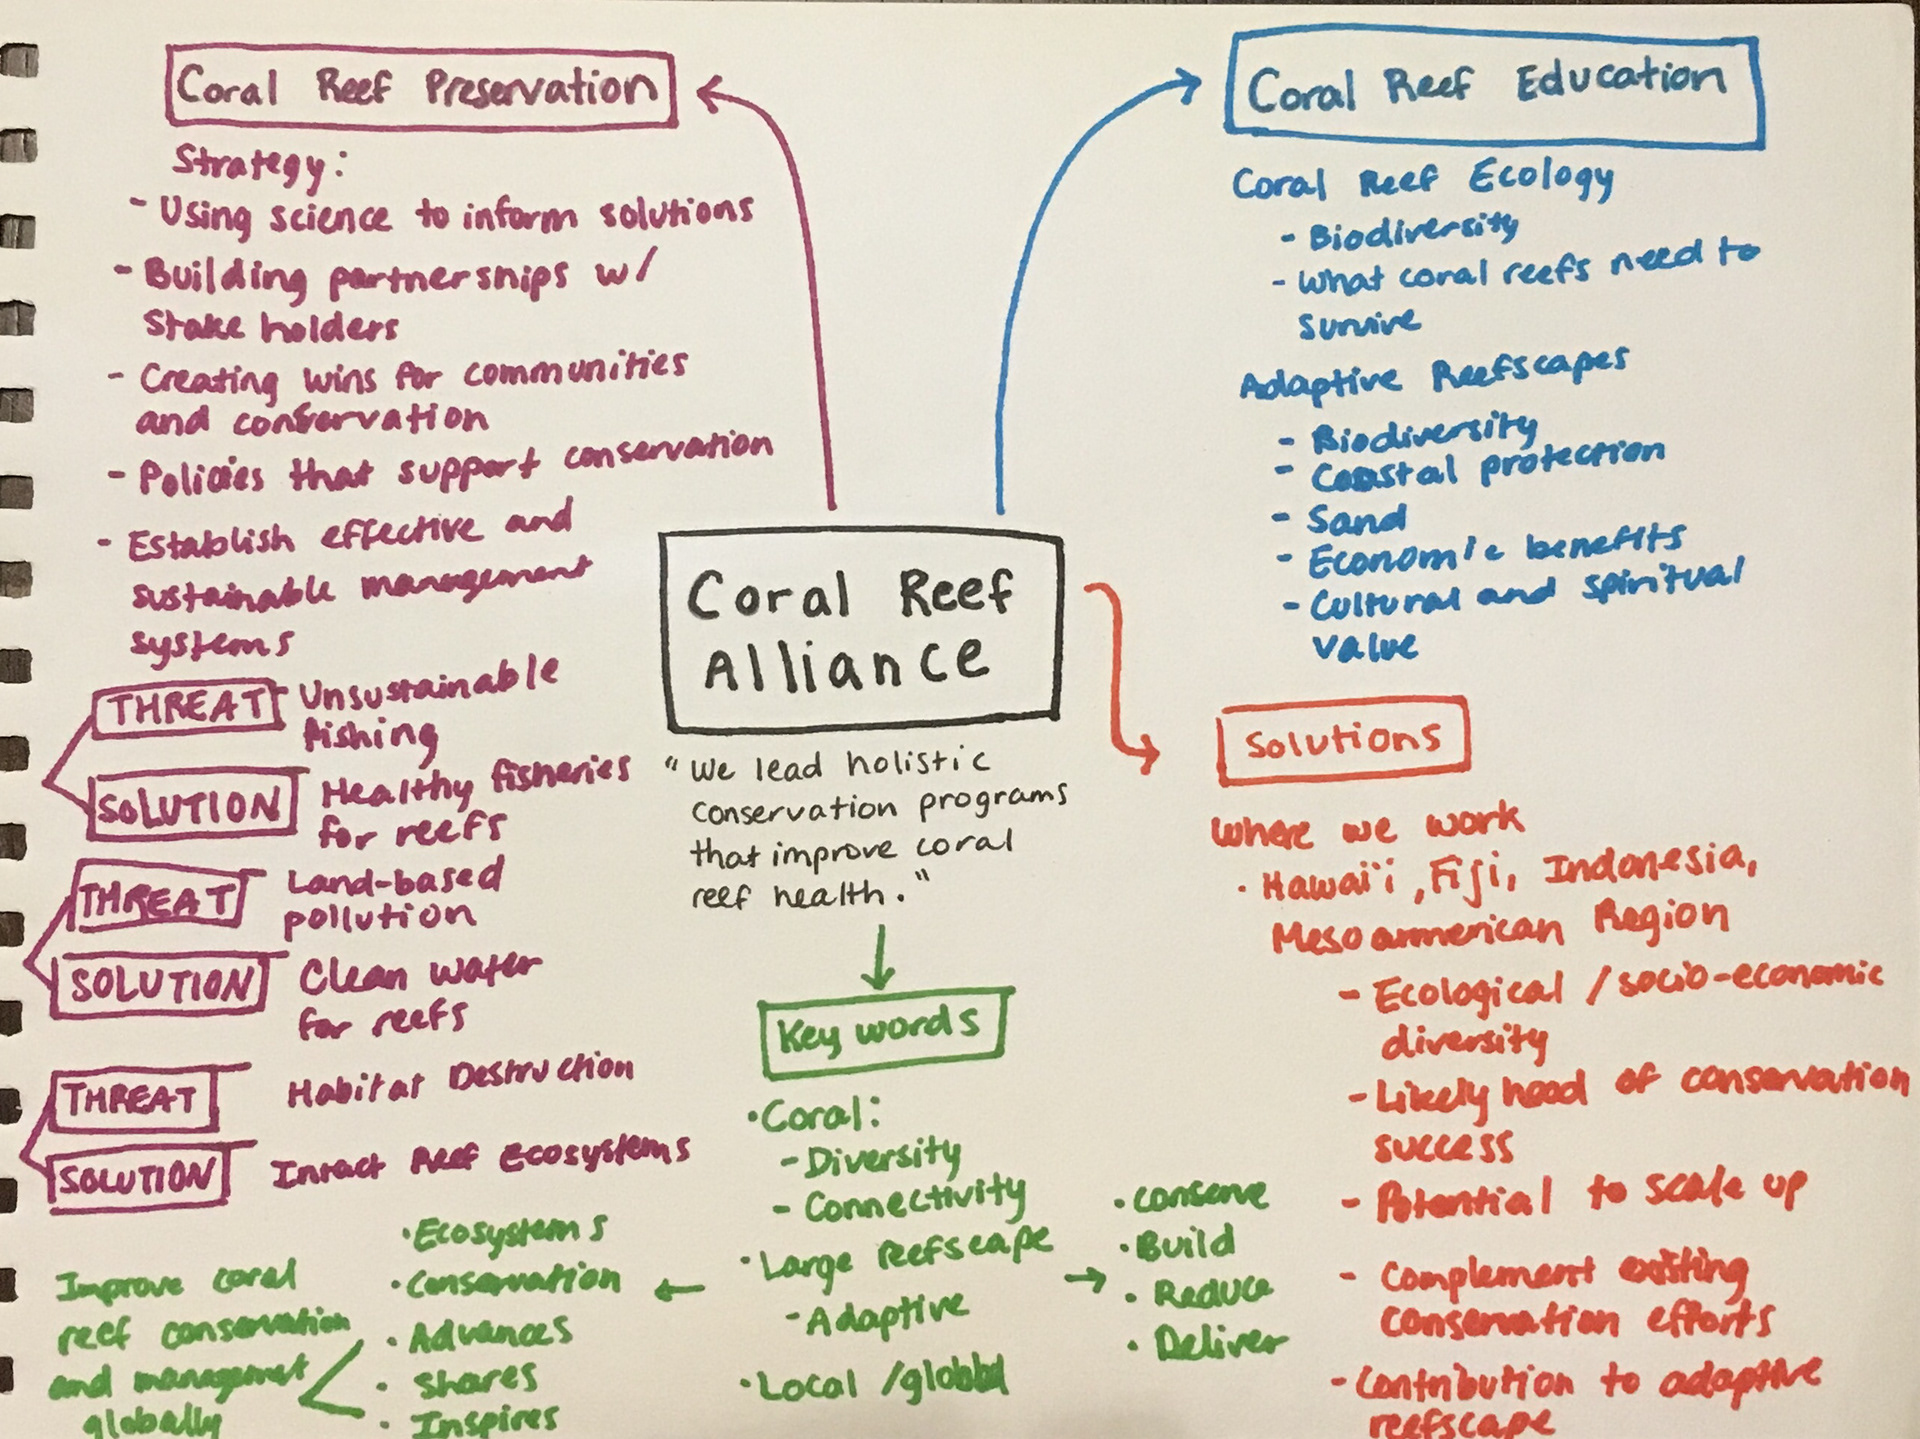 Coral Reef Preservation
Strategy:
- Using science to inform solutions
- Building partnerships w/
stake holders
- Creating wins for communities
and conservation
- Policies that support conservation
- Establish effective and
sustainable management
systems
THREAT Unsustainable
fishing
SOLUTION Healthy fisheries
for reefs
THREAT Land-based
pollution
SOLUTION Clean water
for reefs
THREAT Habitat Destruction
SOLUTION Intact Reef Ecosystems
Coral Reef
Alliance
"We lead holistic
conservation programs
that improve coral
reef health."
Coral Reef Education
Coral Reef Ecology
- Biodiversity
- What coral reefs need to
survive
Adaptive Reefscapes
- Biodiversity
- Coastal protection
- Sand
- Economic benefits
- Cultural and spiritual
value
Solutions
Where we work
· Hawai'i, Fiji, Indonesia,
Mesoamerican Region
- Ecological / socio-economic
diversity
- Likely hood of conservation
success
- Potential to scale up
- Complement existing
conservation efforts
- Contribution to adaptive
reefscape
Key words
· Coral:
- Diversity
- Connectivity
· Large reefscape
- Adaptive
· Local / global
· Conserve
· Build
· Reduce
· Deliver
· Ecosystems
· Conservation
· Advances
· Shares
· Inspires
Improve coral
reef conservation
and management
globally